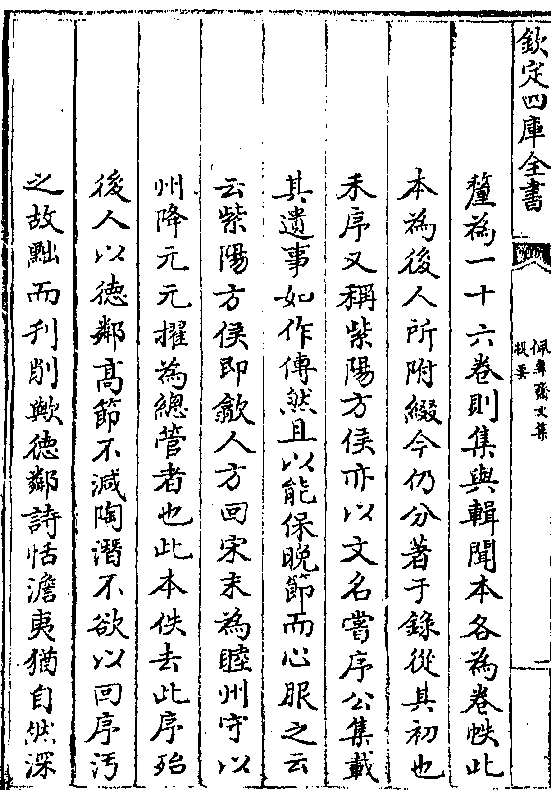 欽定四庫全書
佩韋齋文集
提要
釐為一十六卷則集與輯聞本各為卷帙此
本為後人所附綴今仍分著于錄從其初也
禾序又稱紫陽方侯亦以文名嘗序公集載
其遺事如作傳然且以能保晚節而心服之云
云紫陽方侯即歙人方回宋末為睦州守以
州降元元擢為總管者也此本佚去此序殆
後人以徳鄰髙節不減陶潛不欲以回序汚
之故黜而刋削歟徳鄰詩恬澹夷猶自然深